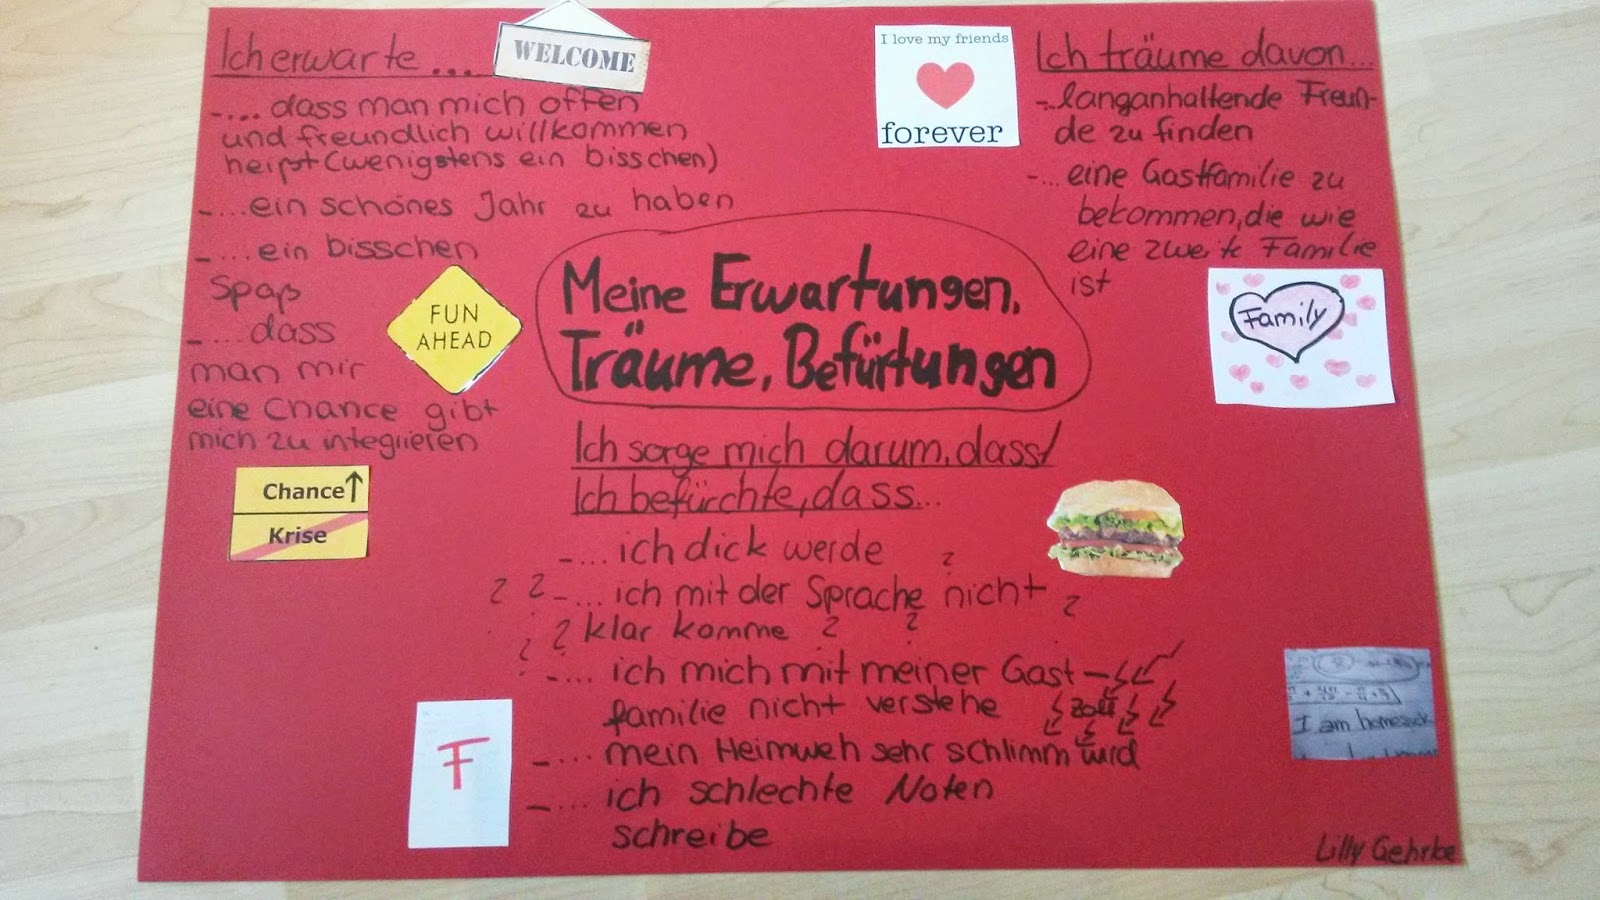 Ich erwarte ...
WELCOME
-.... dass man mich offen
und freundlich willkommen
heißt (wenigstens ein bisschen)
-.... ein schönes Jahr zu haben
-... ein bisschen
Spaß
-.... dass
man mir
eine Chance gibt
mich zu integriieren
FUN
AHEAD
Chance↑
Krise
I love my friends
forever
Ich träume davon...
-...langanhaltende Freun-
de zu finden
-... eine Gastfamilie zu
bekommen, die wie
eine zweite Familie
ist
Family
Meine Erwartungen,
Träume, Befürtungen
Ich sorge mich darum, dass/
Ich befürchte, dass...
-... ich dick werde
? ? -... ich mit der Sprache nicht ?
? klar komme ? ?
-... ich mich mit meiner Gast-
familie nicht verstehe
-... mein Heimweh sehr schlimm wird
-... ich schlechte Noten
schreibe
F
I am homesick
Lilly Gehrke